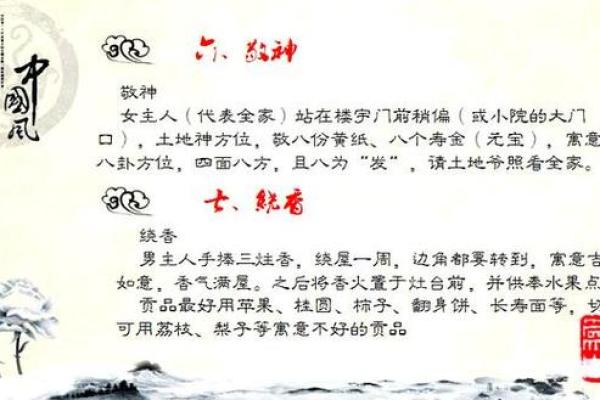 中國风
六、敬神
敬神
女主人（代表全家）站在楼宇门前稍偏（或小院的大门
口），土地神方位，敬八份黄纸、八个寿金（元宝），寓意
八卦方位，四面八方，且八为“发”，请土地爷照看全家。
七、绕香
绕香
男主人手捧三炷香，绕屋一周，边角都要转到，寓意吉
如意，香气满屋。之后将香火置于灶台前，并供奉水果点
贡品最好用苹果、桂圆、柿子、翻身饼、长寿面等，切
可用荔枝、梨子等寓意不好的贡品